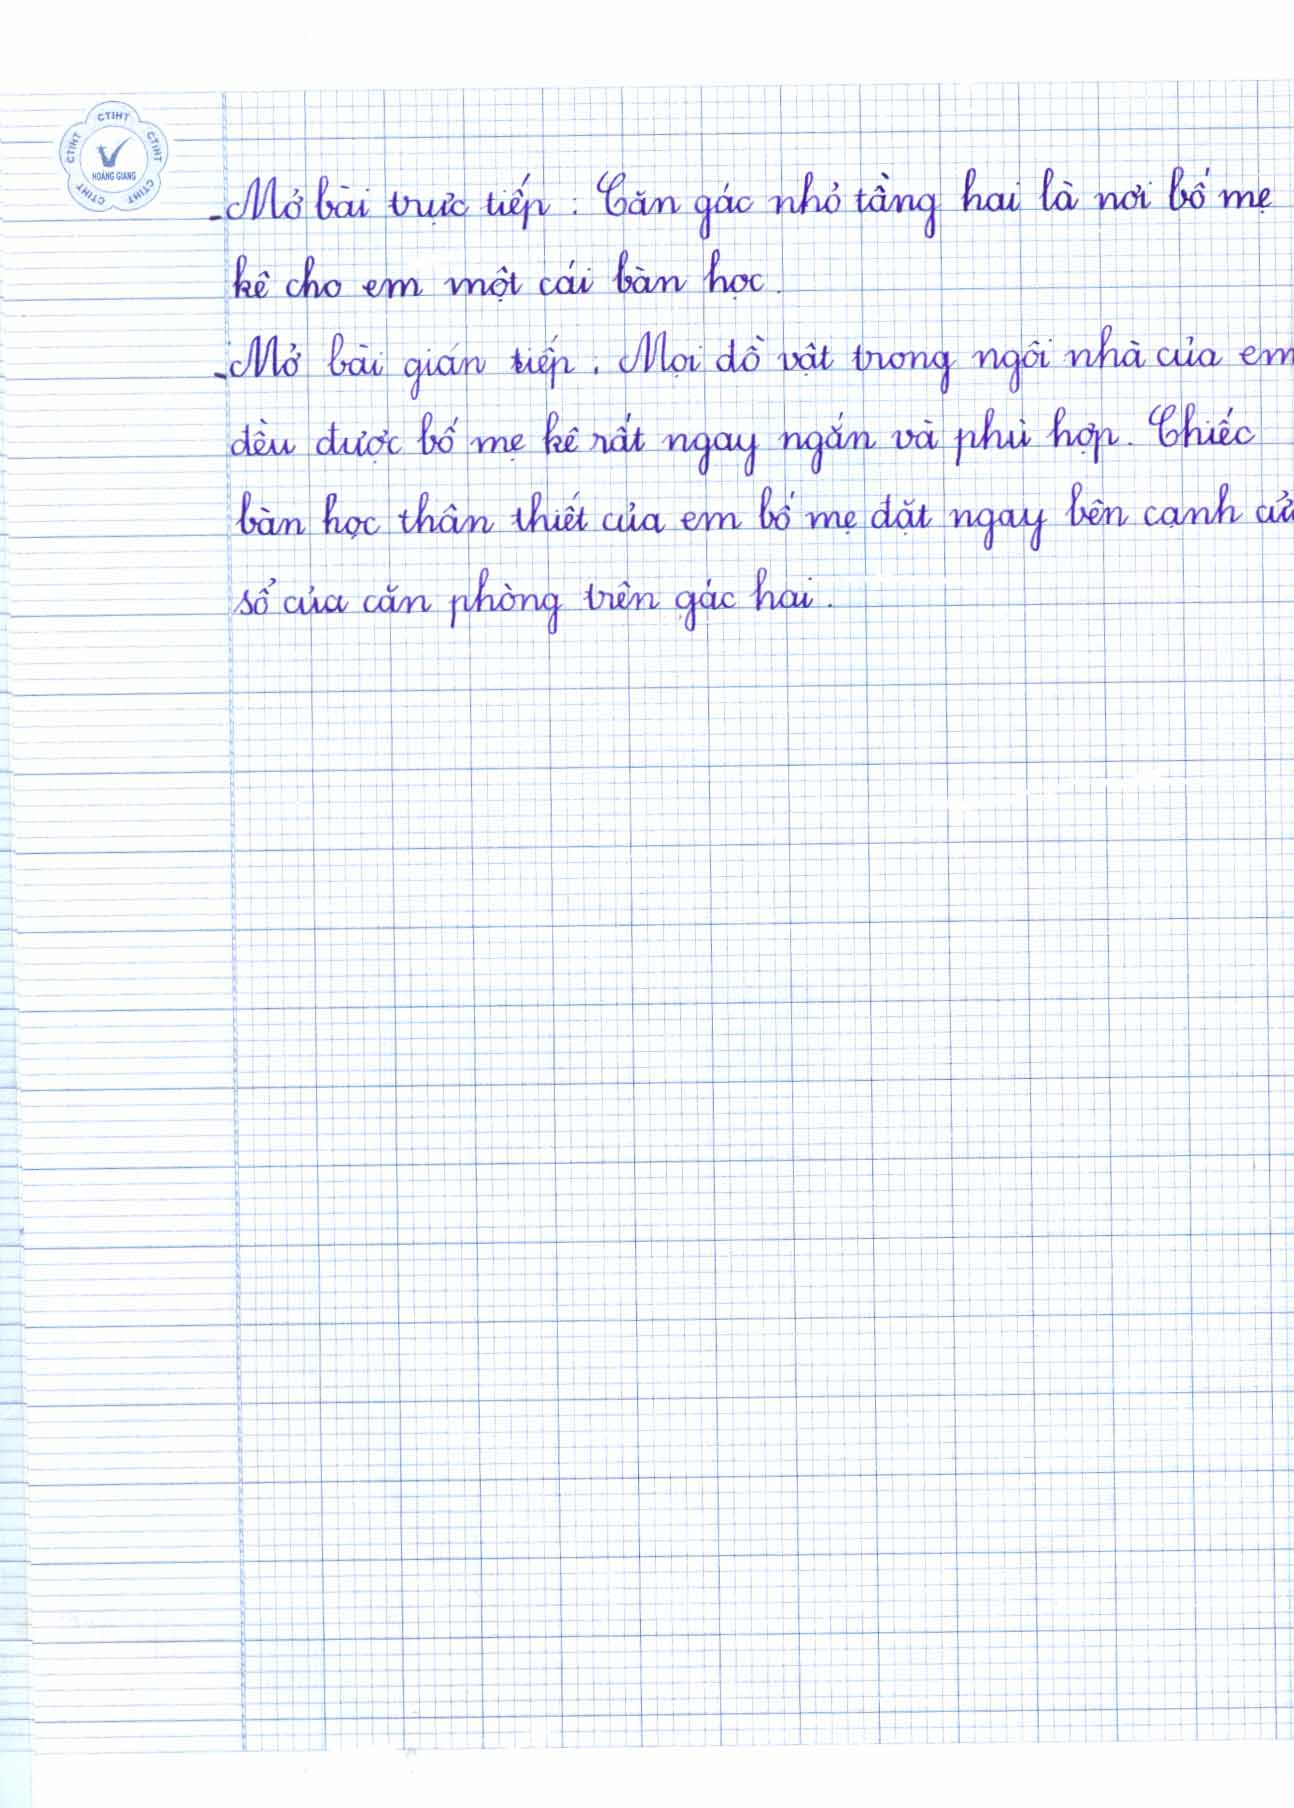 CTIHT CTIHT CTIHT CTIHT CTIHT
HOÀNG GIANG
- Mở bài trực tiếp : Căn gác nhỏ tầng hai là nơi bố mẹ
kê cho em một cái bàn học.
- Mở bài gián tiếp . Mọi đồ vật trong ngôi nhà của em
đều được bố mẹ kê rất ngay ngắn và phù hợp. Chiếc
bàn học thân thiết của em bố mẹ đặt ngay bên cạnh cử
sổ của căn phòng trên gác hai.